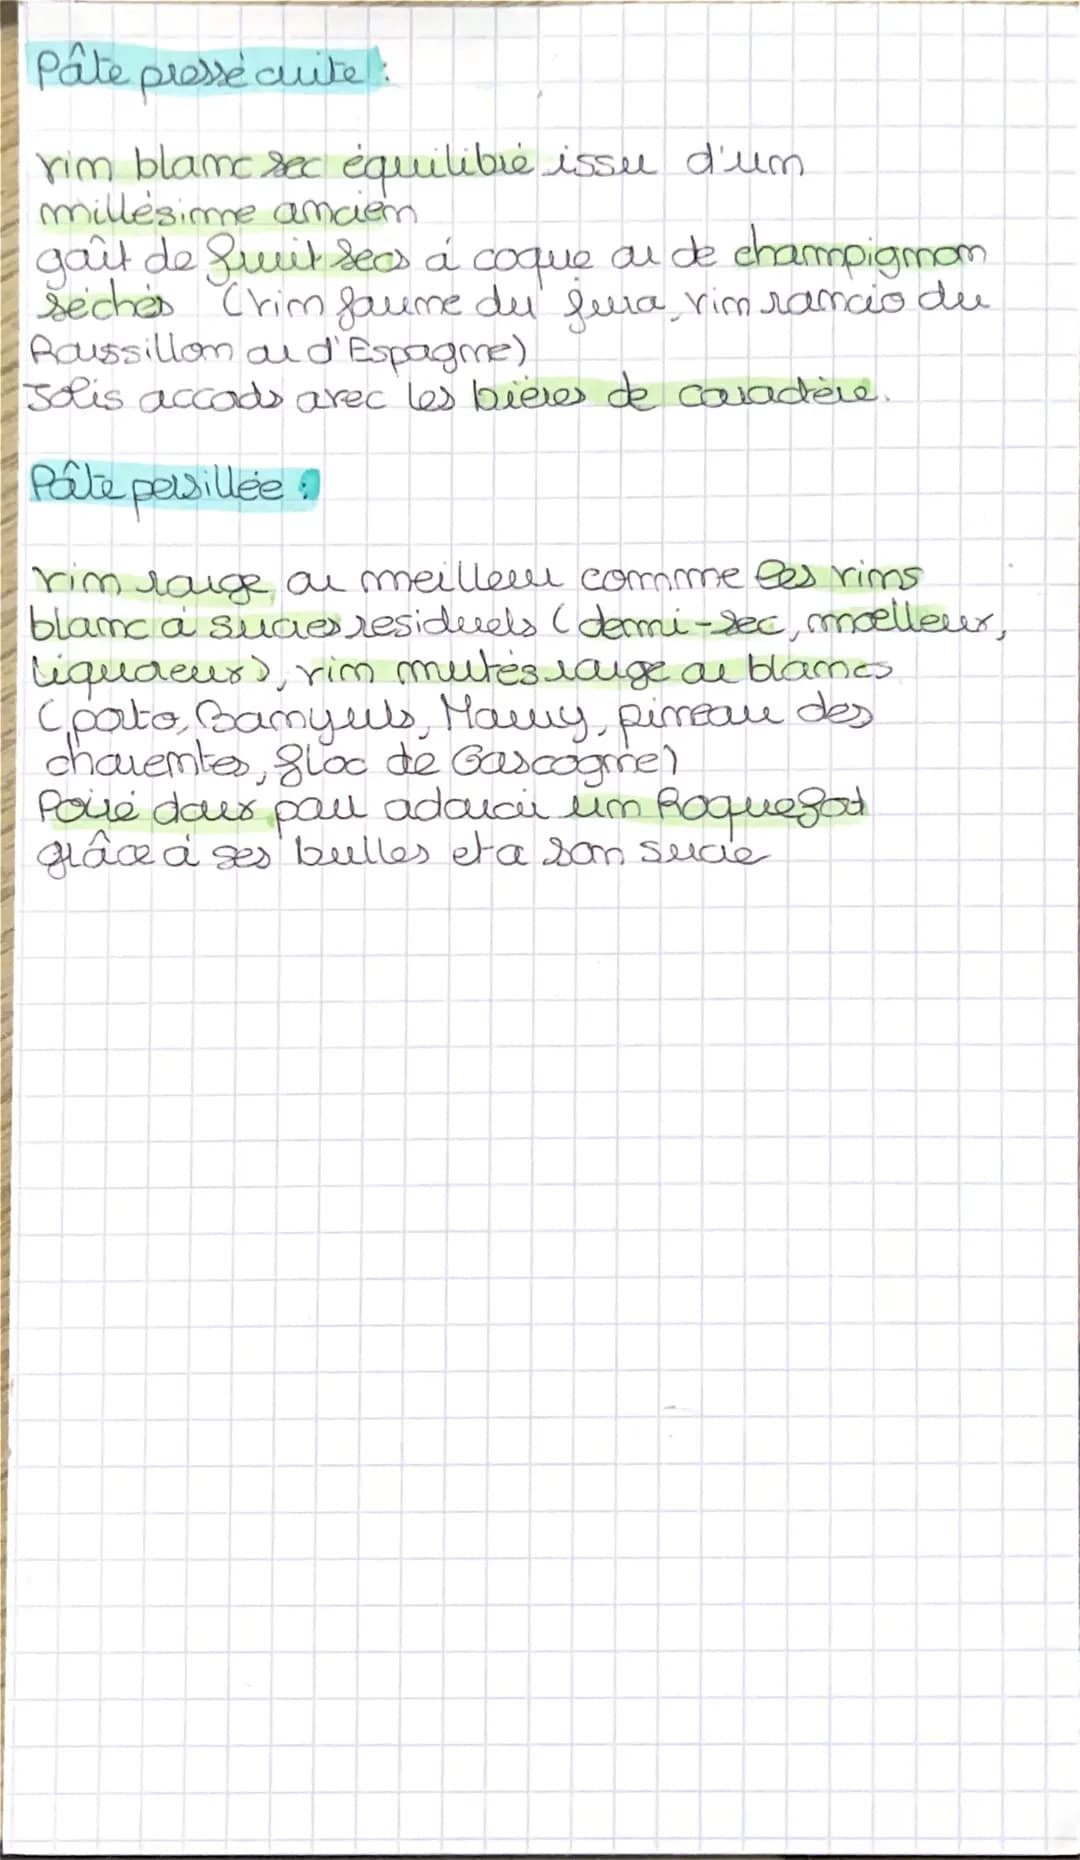 Pâte pressé cuite :
vin blanc sec équilibré issu d'un
millésime ancien
goût de fruit secs à coque ou de champignon
séchés (vin jaune du jura, vin rancio du
Roussillon ou d'Espagne)
Jolis accords avec les bières de caractère.
Pâte persillée :
vin rouge ou meilleur comme les vins
blanc à sucres residuels (demi-sec, moelleux,
liquoreux), vin mutés rouge ou blancs
(porto, Banyuls, Maury, pineau des
charentes, floc de Gascogne)
Poiré doux pour adoucir un Roquefort
grâce à ses bulles et a son sucre